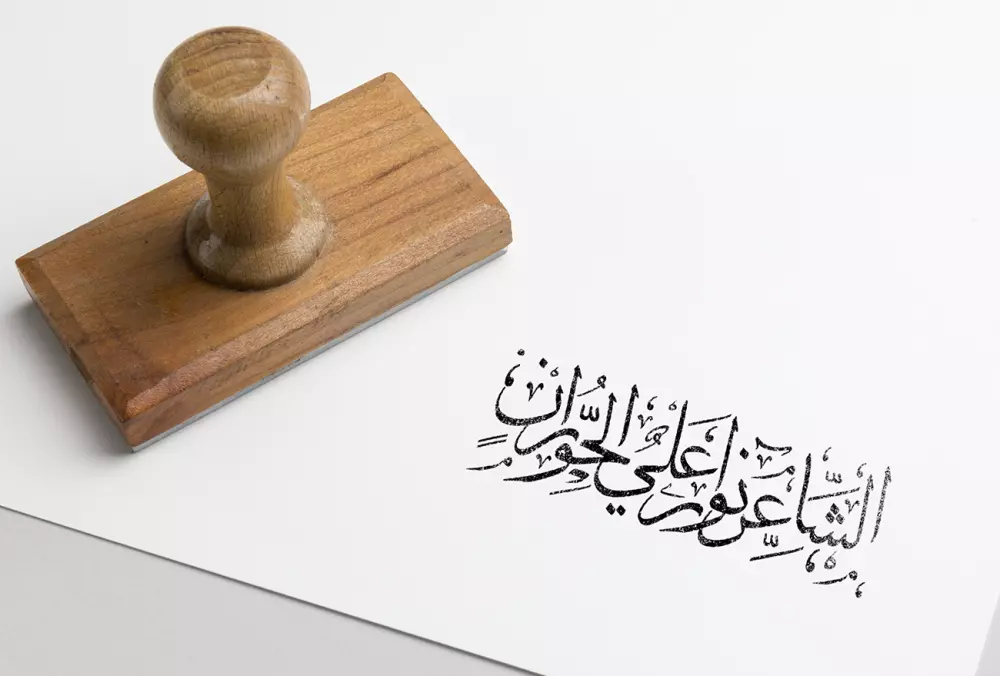 الشَّاعِر نورا عَلي الحوُّران